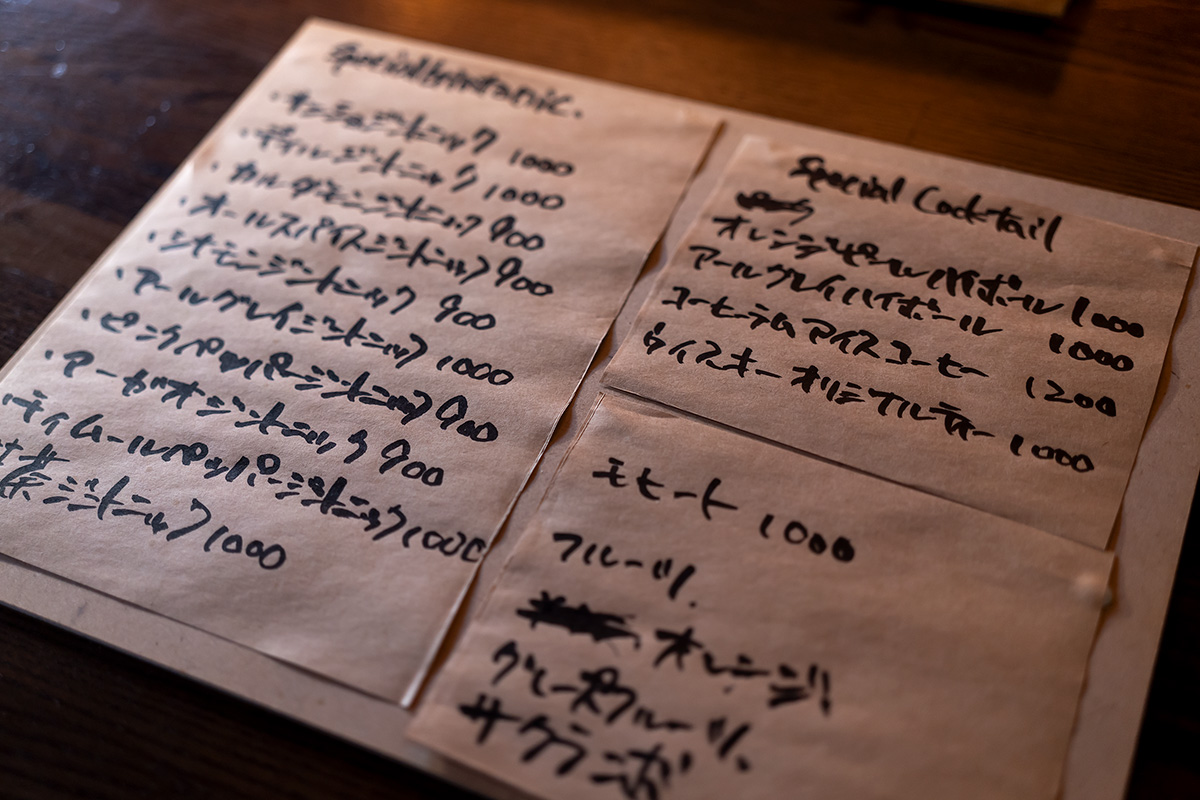 Special Gin tonic.
・サンショジントニック 1000
・ディルジントニック 1000
・カルダモンジントニック 900
・オールスパイスジントニック 900
・シナモンジントニック 900
・アールグレイジントニック 1000
・ピンクペッパージントニック 900
・アーガオジントニック 900
・ティムールペッパージントニック 1000
茶ジントニック 1000
Special Cocktail
オレンジピールハイボール 1000
アールグレイハイボール 1000
コーヒーラムアイスコーヒー 1200
ウイスキーオリジナルティー 1000
モヒート 1000
フルーツ
オレンジ
グレープフルーツ
サクランボ